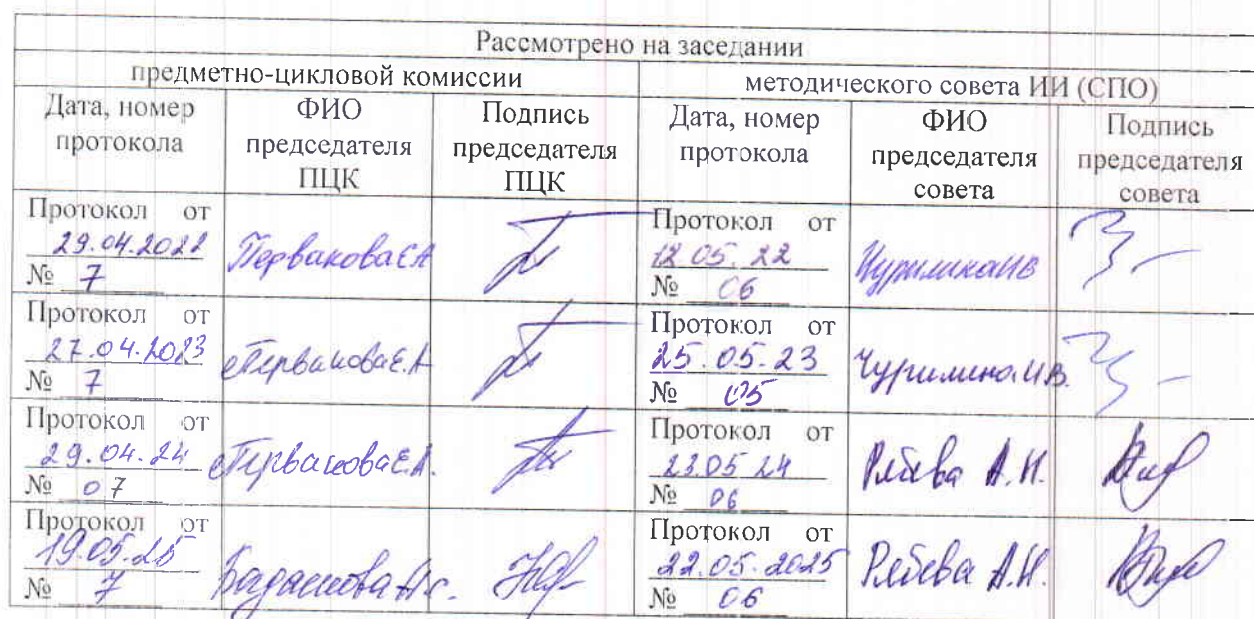 Рассмотрено на заседании
предметно-цикловой комиссии методического совета ИИ (СПО)
Дата, номер протокола ФИО председателя ПЦК Подпись председателя ПЦК Дата, номер протокола ФИО председателя совета Подпись председателя совета
Протокол от
29.04.2022
№ 7
Первакова Е.А
Протокол от
12.05.22
№ 06
Чурилина И.В
Протокол от
27.04.2023
№ 7
Первакова Е.А
Протокол от
25.05.23
№ 05
Чурилина И.В.
Протокол от
29.04.24
№ 07
Первакова Е.А.
Протокол от
23.05 24
№ 06
А.Н.
Протокол от
19.05.25
№ 7
Протокол от
22.05.2025
№ 06
А.Н.